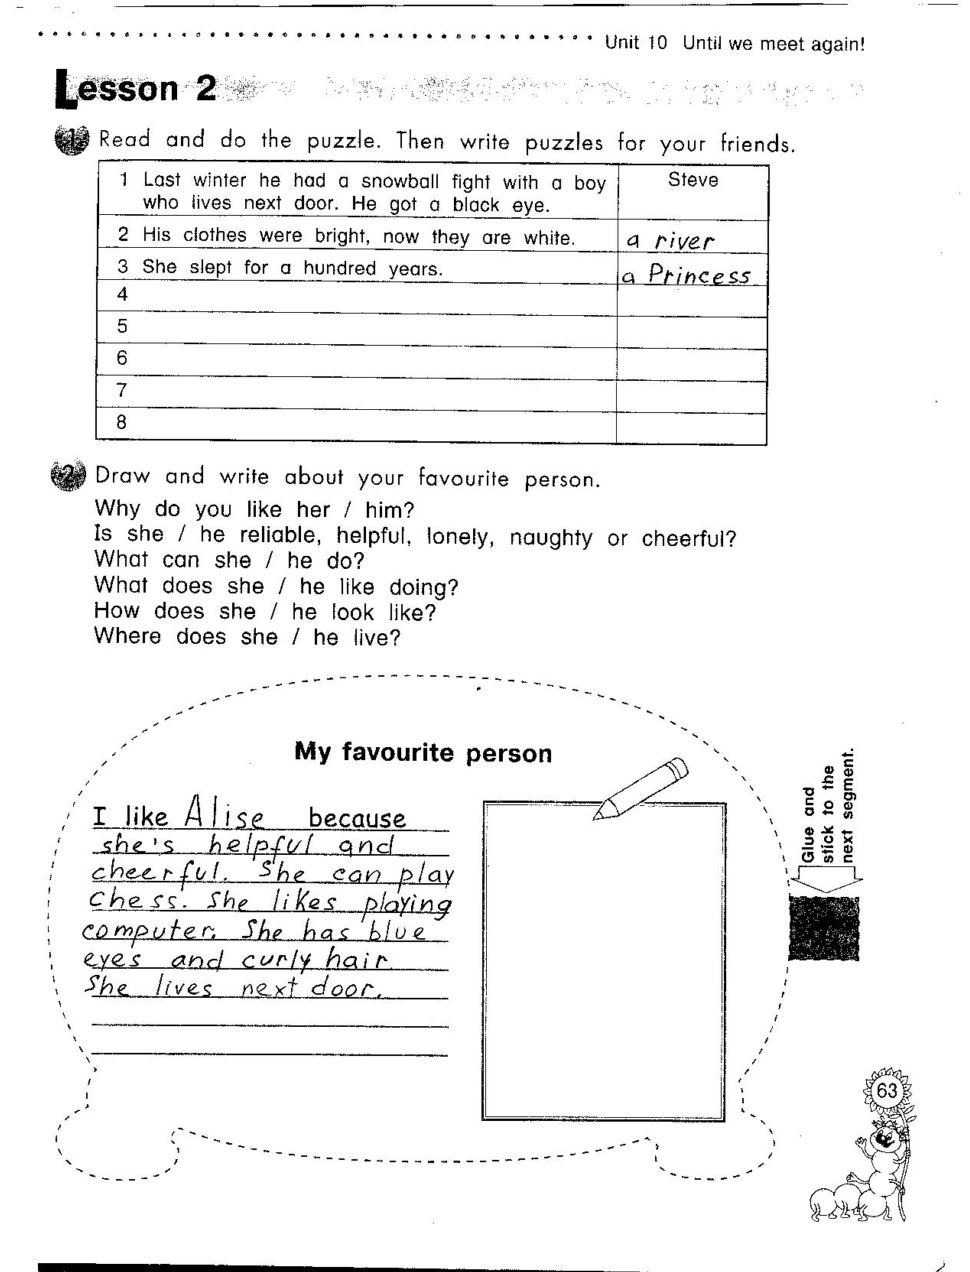 Unit 10 Until we meet again!
Lesson 2
1 Read and do the puzzle. Then write puzzles for your friends.
1 Last winter he had a snowball fight with a boy
who lives next door. He got a black eye.
Steve
2 His clothes were bright, now they are white.
a river
3 She slept for a hundred years.
a Princess
4
5
6
7
8
2 Draw and write about your favourite person.
Why do you like her / him?
Is she / he reliable, helpful, lonely, naughty or cheerful?
What can she / he do?
What does she / he like doing?
How does she / he look like?
Where does she / he live?
My favourite person
I like Alise because
she's helpful and
cheerful. She can play
Chess. She likes playing
computer. She has blue
eyes and curly hair.
She lives next door.
Glue and
stick to the
next segment.
63